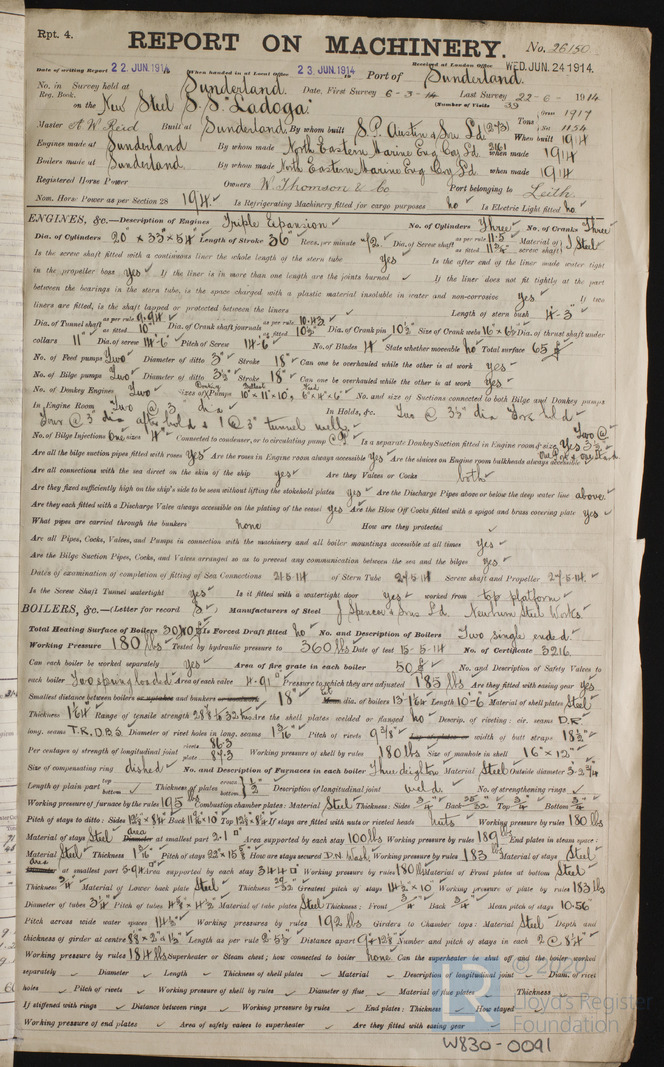 Rpt. 4.
REPORT ON MACHINERY.
No. 26150
Date of writing Report 22 JUN.1914 When handed in at Local Office 23 JUN.1914 Port of Sunderland. Received at London Office WED. JUN. 24 1914.
No. in Survey held at Sunderland. Date, First Survey 6-3-14 Last Survey 22-6-1914
Reg. Book. (Number of Visits 39
on the New Steel S.S. "Ladoga" Tons Gross 1917 Net 1154
Master A W Reid Built at Sunderland By whom built S.P. Austin & Son Ld. (273) When built 1914
Engines made at Sunderland By whom made North Eastern Marine Eng. Coy Ld. 2161 when made 1914
Boilers made at Sunderland. By whom made North Eastern Marine Eng. Coy Ld. when made 1914
Registered Horse Power Owners W. Thomson & Co Port belonging to Leith
Nom. Horse Power as per Section 28 194 Is Refrigerating Machinery fitted for cargo purposes no Is Electric Light fitted no
ENGINES, &c.—Description of Engines Triple Expansion No. of Cylinders Three No. of Cranks Three
Dia. of Cylinders 20" x 33" x 54" Length of Stroke 36" Revs. per minute 72 Dia. of Screw shaft as per rule 11.5 as fitted Material of screw shaft Steel
Is the screw shaft fitted with a continuous liner the whole length of the stern tube yes Is the after end of the liner made water tight
in the propeller boss yes If the liner is in more than one length are the joints burned If the liner does not fit tightly at the part
between the bearings in the stern tube, is the space charged with a plastic material insoluble in water and non-corrosive yes If two
liners are fitted, is the shaft lapped or protected between the liners Length of stern bush 4-3"
Dia. of Tunnel shaft as per rule 9.94 as fitted 10" Dia. of Crank shaft journals as per rule 10.43 as fitted 10½ Dia. of Crank pin 10½" Size of Crank webs 16" x 6½ Dia. of thrust shaft under
collars 11" Dia. of screw 14-6" Pitch of Screw 14-6" No. of Blades 4 State whether moveable no Total surface 65
No. of Feed pumps Two Diameter of ditto 3" Stroke 18" Can one be overhauled while the other is at work yes
No. of Bilge pumps Two Diameter of ditto 3½" Stroke 18" Can one be overhauled while the other is at work yes
No. of Donkey Engines Two Sizes of Pumps Ballast 10" x 11" x 10", 6" x 4" x 6" No. and size of Suctions connected to both Bilge and Donkey pumps
In Engine Room Two @ 3" dia In Holds, &c. Two @ 3½" dia
Four @ 3" dia after hold & 1 @ 3" tunnel well
No. of Bilge Injections One sizes 4" Connected to condenser, or to circulating pump C.P. Is a separate Donkey Suction fitted in Engine room & size Yes
Are all the bilge suction pipes fitted with roses yes Are the roses in Engine room always accessible yes Are the sluices on Engine room bulkheads always accessible
Are all connections with the sea direct on the skin of the ship yes Are they Valves or Cocks both
Are they fixed sufficiently high on the ship's side to be seen without lifting the stokehold plates yes Are the Discharge Pipes above or below the deep water line above
Are they each fitted with a Discharge Valve always accessible on the plating of the vessel yes Are the Blow Off Cocks fitted with a spigot and brass covering plate yes
What pipes are carried through the bunkers none How are they protected
Are all Pipes, Cocks, Valves, and Pumps in connection with the machinery and all boiler mountings accessible at all times yes
Are the Bilge Suction Pipes, Cocks, and Valves arranged so as to prevent any communication between the sea and the bilges yes
Dates of examination of completion of fitting of Sea Connections 21.5.14 of Stern Tube 27.5.14 Screw shaft and Propeller 27.5.14
Is the Screw Shaft Tunnel watertight yes Is it fitted with a watertight door yes worked from top platform
BOILERS, &c.—(Letter for record S) Manufacturers of Steel J Spencer & Sons Ld. Newburn Steel Works.
Total Heating Surface of Boilers Is Forced Draft fitted no No. and Description of Boilers Two single ended.
Working Pressure 180 lbs Tested by hydraulic pressure to 360 lbs Date of test 15-5-14 No. of Certificate 3216
Can each boiler be worked separately yes Area of fire grate in each boiler 50 No. and Description of Safety Valves to
each boiler Two spring loaded Area of each valve 4.91 Pressure to which they are adjusted 185 lbs Are they fitted with easing gear yes
Smallest distance between boilers or uptakes and bunkers or woodwork 18" dia. of boilers Length 10-6" Material of shell plates Steel
Thickness Range of tensile strength 28½/32 tons Are the shell plates welded or flanged no Descrip. of riveting: cir. seams D.R.
long. seams T.R.D.B.S. Diameter of rivet holes in long. seams 1 3/16" Pitch of rivets lap of plates or width of butt straps
Per centages of strength of longitudinal joint rivets 86.3 plate 87.3 Working pressure of shell by rules 180 lbs Size of manhole in shell 16" x 12"
Size of compensating ring dished No. and Description of Furnaces in each boiler Three Deighton Material Steel Outside diameter
Length of plain part top bottom Thickness of plates crown bottom ½" Description of longitudinal joint weld No. of strengthening rings
Working pressure of furnace by the rules 195 lbs Combustion chamber plates: Material Steel Thickness: Sides ¾" Back Top ¾" Bottom ¾"
Pitch of stays to ditto: Sides Back Top If stays are fitted with nuts or riveted heads nuts Working pressure by rules 180 lbs
Material of stays Steel Diameter area at smallest part 2.1 Area supported by each stay 100 Working pressure by rules 189 lbs End plates in steam space:
Material Steel Thickness Pitch of stays How are stays secured D.N. Wash Working pressure by rules 183 lbs Material of stays Steel
area Diameter at smallest part Area supported by each stay Working pressure by rules 180 lbs Material of Front plates at bottom Steel
Thickness Material of Lower back plate Steel Thickness Greatest pitch of stays 14½ x 10 Working pressure of plate by rules 183 lbs
Diameter of tubes 3¼ Pitch of tubes Material of tube plates Steel Thickness: Front ¾" Back ¾" Mean pitch of stays 10.56"
Pitch across wide water spaces 14½" Working pressures by rules 192 lbs Girders to Chamber tops: Material Steel Depth and
thickness of girder at centre Length as per rule Distance apart Number and pitch of stays in each 2 @ 8¼"
Working pressure by rules 184 lbs Superheater or Steam chest; how connected to boiler none Can the superheater be shut off and the boiler worked
separately Diameter Length Thickness of shell plates Material Description of longitudinal joint Diam. of rivet
holes Pitch of rivets Working pressure of shell by rules Diameter of flue Material of flue plates Thickness
If stiffened with rings Distance between rings Working pressure by rules End plates: Thickness How stayed
Working pressure of end plates Area of safety valves to superheater Are they fitted with easing gear
© 2020
Lloyd's Register
Foundation
W830-0091